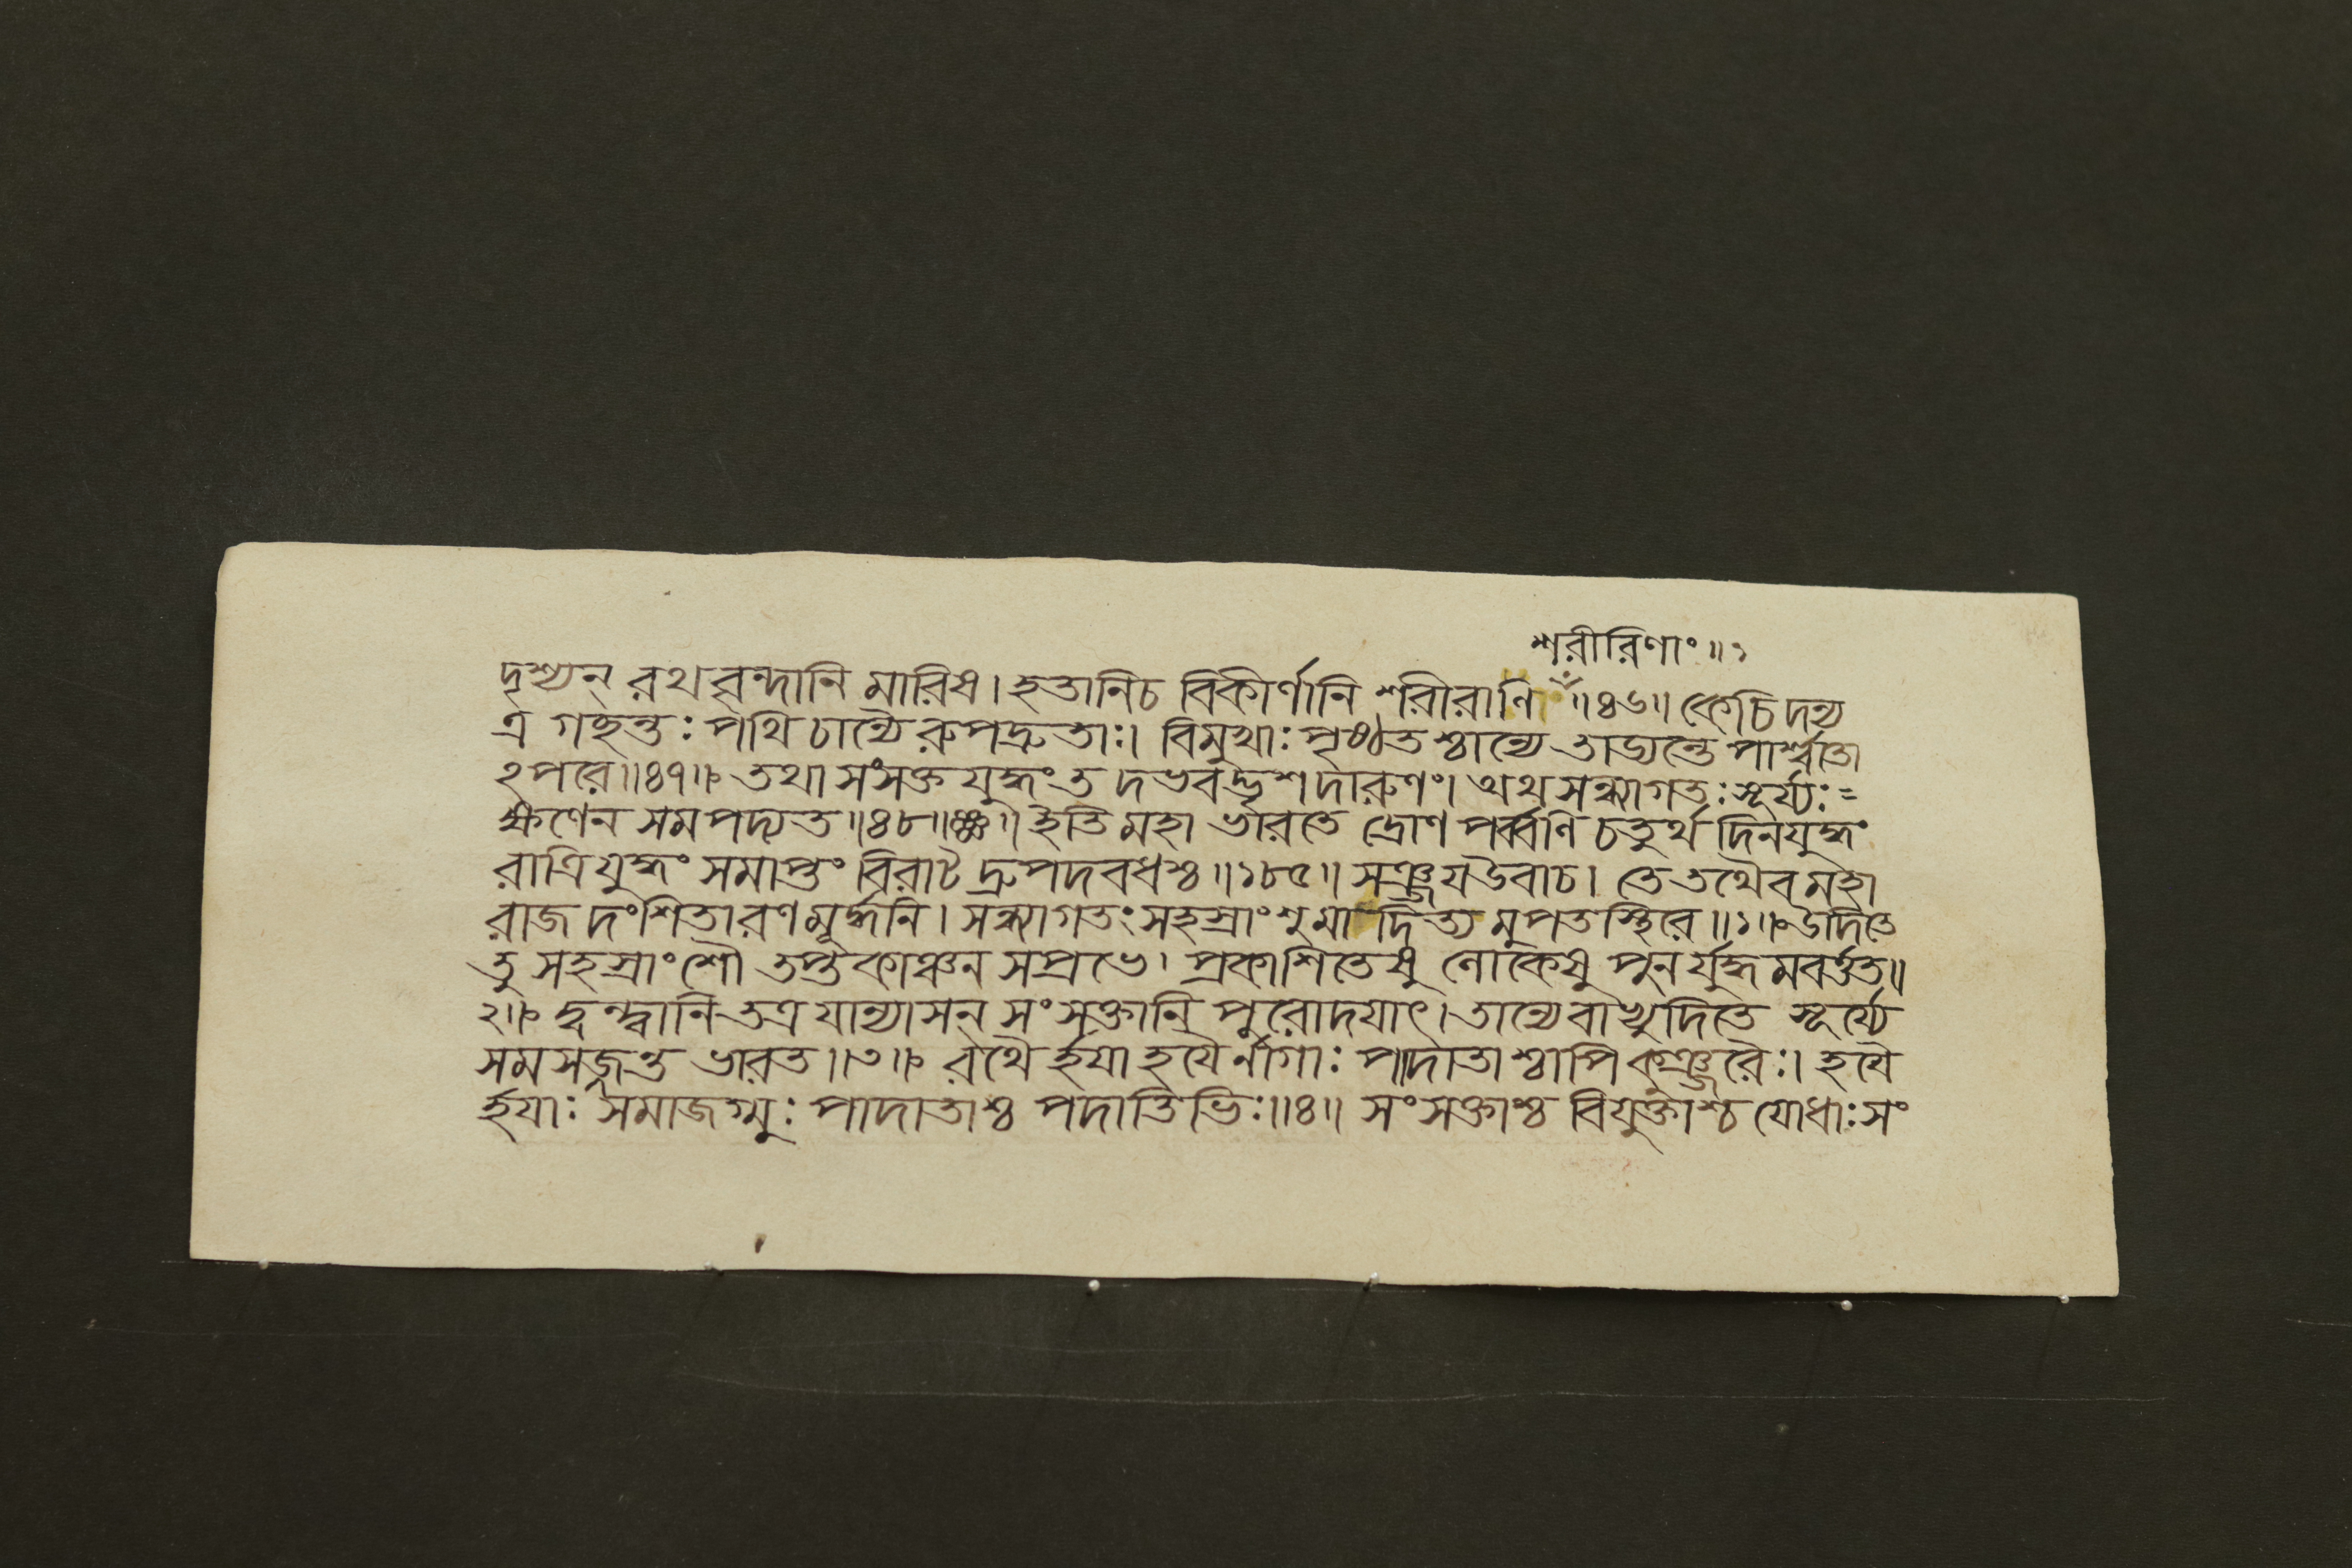 শরীরিণাং॥১
দৃশ্যন্ রথবৃন্দানি মারিষ। হতানিচ বিকীর্ণানি শরীরাণি ॥৪৬॥ কেচিদন্য
ত্র গচ্ছন্তঃ পথি চান্যৈরুপদ্রুতাঃ। বিমুখাঃ পৃষ্ঠতশ্চান্যে তাড্যন্তে পার্শ্বতো
ঽপরে॥৪৭॥ তথা সংসক্তযুদ্ধং তদভবদ্ভৃশদারুণং। অথ সন্ধ্যাগতঃ সূর্য্যঃ
ক্ষণেন সমপদ্যত॥৪৮॥ইতি মহাভারতে দ্রোণপর্ব্বণি চতুর্থ দিনযুদ্ধং
রাত্রিযুদ্ধং সমাপ্তং বিরাট দ্রুপদবধশ্চ॥১৮৫॥ সঞ্জয়উবাচ। তে তথৈব মহা
রাজ দংশিতা রণমূর্দ্ধনি। সন্ধ্যাগতং সহস্রাংশুমাদিত্যমুপতস্থিরে॥১॥ উদিতে
তু সহস্রাংশৌ তপ্তকাঞ্চনসপ্রভে। প্রকাশিতেষু লোকেষু পুনর্যুদ্ধমবর্ত্তত॥
২॥ দ্বন্দ্বানি তত্র যান্যাসন্ সংসক্তানি পুরোদয়াৎ। তান্যেবাভ্যুদিতে সূর্য্যে
সমসজ্জন্ত ভারত॥৩॥ রথৈর্হয়া হয়ৈর্নাগাঃ পাদাতাশ্চাপি কুঞ্জরৈঃ। হয়ৈ
র্হয়াঃ সমাজগ্মুঃ পাদাতাশ্চ পদাতিভিঃ॥৪॥ সংসক্তাশ্চ বিযুক্তাশ্চ যোধাঃ সং